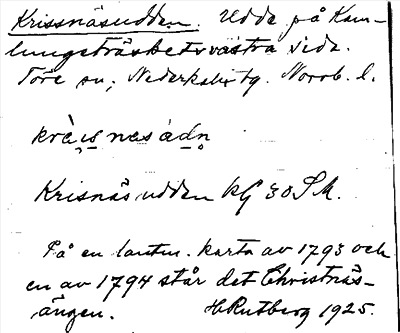 Krissnäsudden. Udde på Kam-
lungeträskets västra sida.
Töre sn; Nederkalix tg. Norrb. l.
Krisnäsudden kG 30 SM.
På en lantm. karta av 1793 och
en av 1794 står det Christnäs-
ängen. H Rutberg 1925.